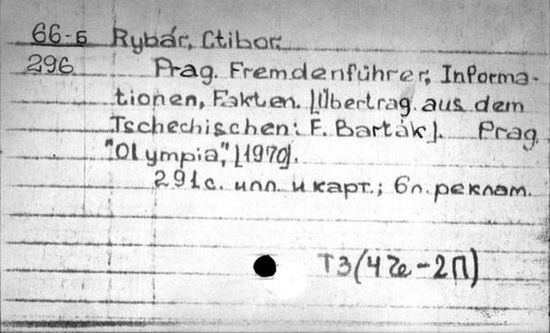 66-Б Rybár, Ctibor.
296 Prag. Fremdenführer, Informa-
tionen, Fakten. [Übertrag. aus dem
Tschechischen: F. Barták]. Prag,
"Olympia", [1970].
291 с. илл. и карт.; 6 л. реклам.
Т3(4Че-2П)